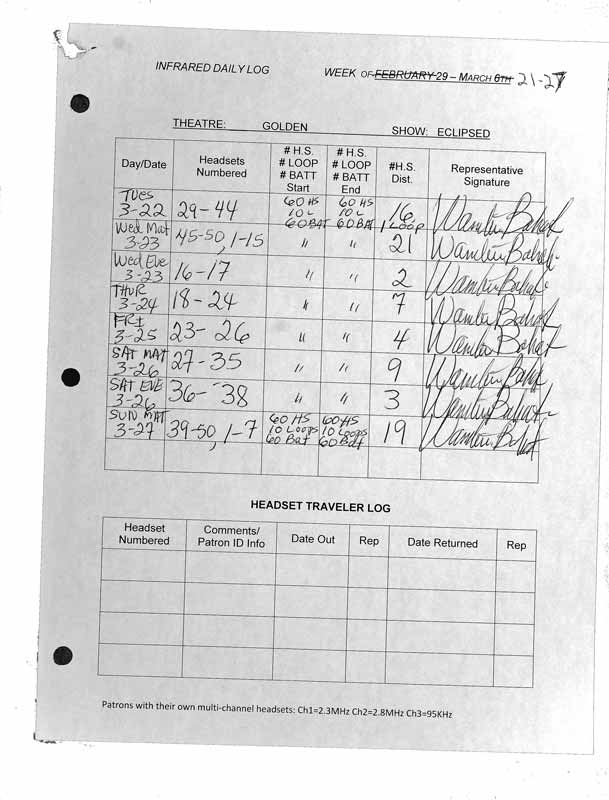 INFRARED DAILY LOG WEEK OF FEBRUARY 29 – MARCH 6TH 21-27
THEATRE: GOLDEN SHOW: ECLIPSED
Day/Date Headsets Numbered # H.S. # LOOP # BATT Start # H.S. # LOOP # BATT End #H.S. Dist. Representative Signature
TUES 3-22 29-44 60 HS 10 L 60 BAT 60 HS 10 L 60 BAT 16 1 LOOP
Wed Mat 3-23 45-50, 1-15 " " 21
Wed Eve 3-23 16-17 " " 2
THUR 3-24 18-24 " " 7
FRI 3-25 23-26 " " 4
SAT MAT 3-26 27-35 " " 9
SAT EVE 3-26 36-38 " " 3
SUN MAT 3-27 39-50, 1-7 60 HS 10 Loops 60 Bat 60 HS 10 Loops 60 Bat 19
HEADSET TRAVELER LOG
Headset Numbered Comments/ Patron ID Info Date Out Rep Date Returned Rep
Patrons with their own multi-channel headsets: Ch1=2.3MHz Ch2=2.8MHz Ch3=95KHz